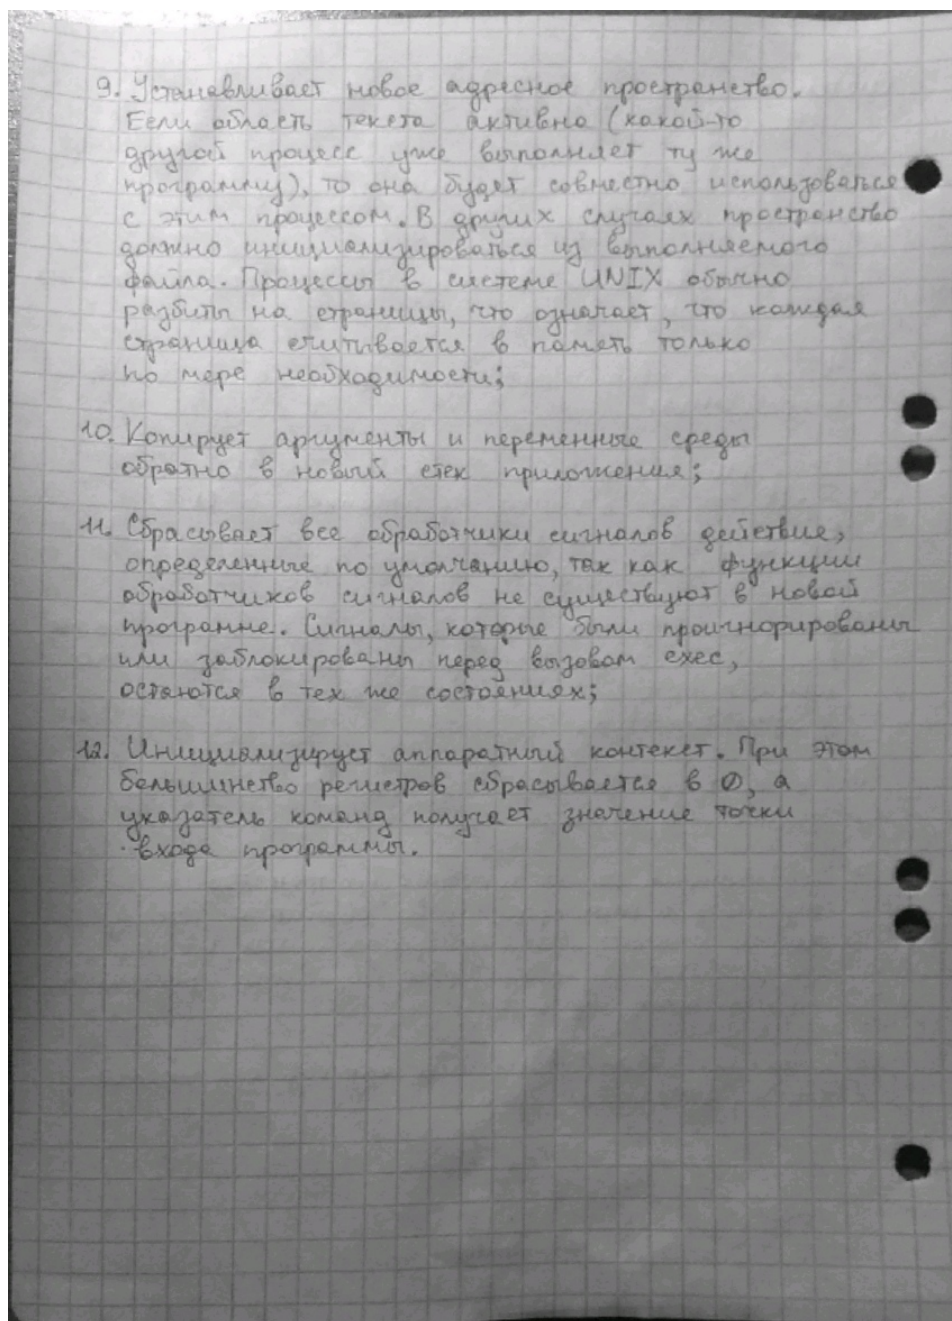 9. Устанавливает новое адресное пространство.
Если область текста активна (какой-то
другой процесс уже выполняет ту же
программу), то она будет совместно использоваться
с этим процессом. В других случаях пространство
должно инициализироваться из выполняемого
файла. Процессы в системе UNIX обычно
разбиты на страницы, что означает, что каждая
страница считывается в память только
по мере необходимости;
10. Копирует аргументы и переменные среды
обратно в новый стек приложения;
11. Сбрасывает все обработчики сигналов действие,
определенные по умолчанию, так как функции
обработчиков сигналов не существуют в новой
программе. Сигналы, которые были проигнорированы
или заблокированы перед вызовом exec,
остаются в тех же состояниях;
12. Инициализирует аппаратный контекст. При этом
большинство регистров сбрасывается в 0, а
указатель команд получает значение точки
входа программы.